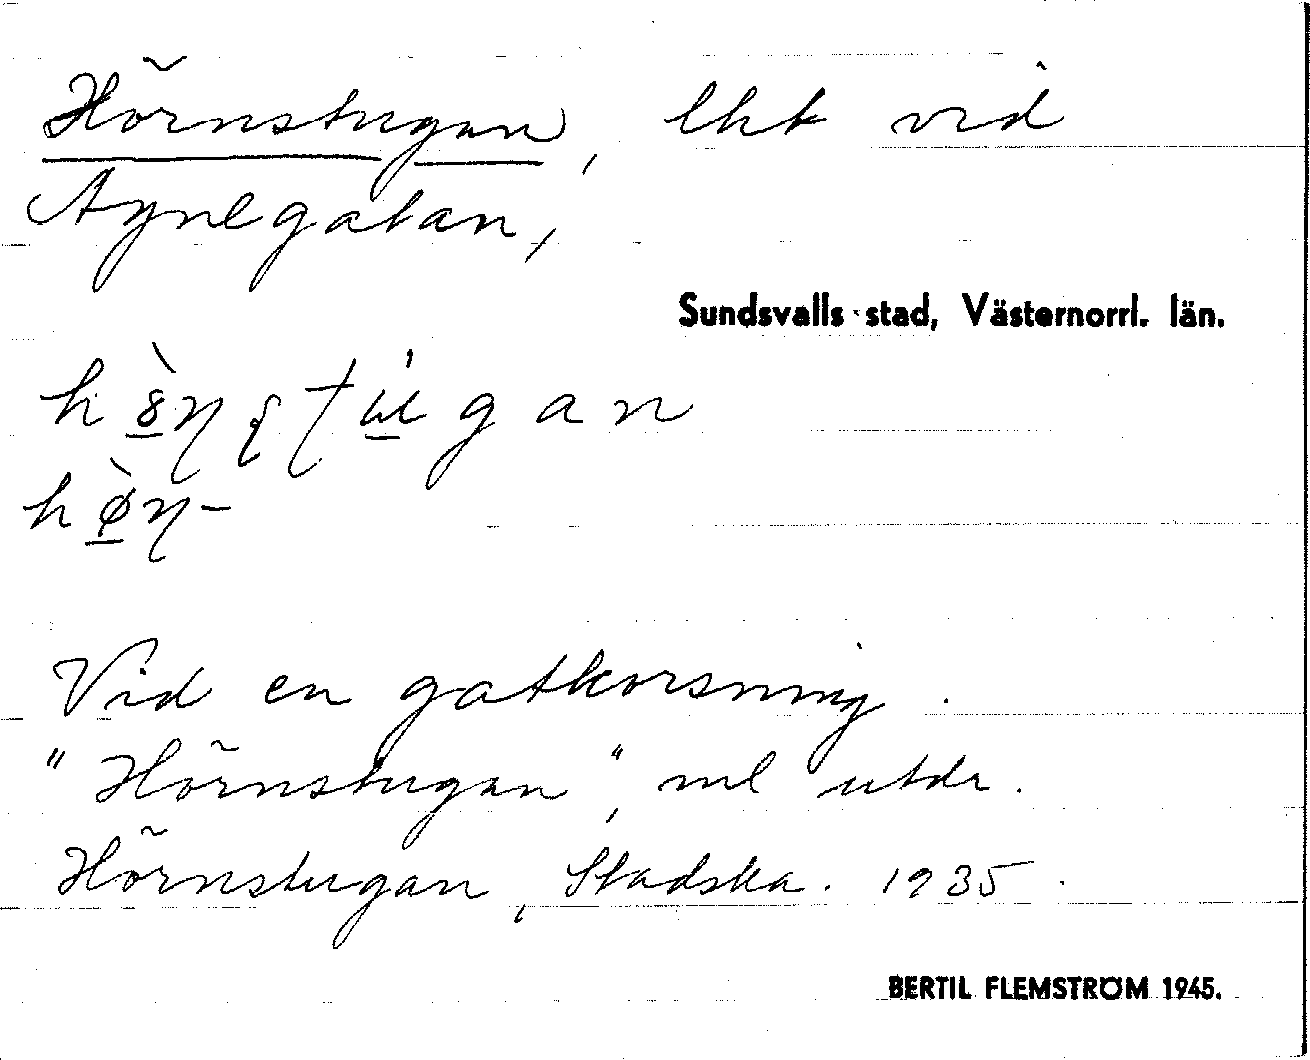 Hörnstugan, lht vid
Aynegatan,
Sundsvalls stad, Västernorrl. län.
Vid en gatkorsning.
"Hörnstugan", ml utdr.
Hörnstugan, Stadska. 1935.
BERTIL FLEMSTRÖM 1945.